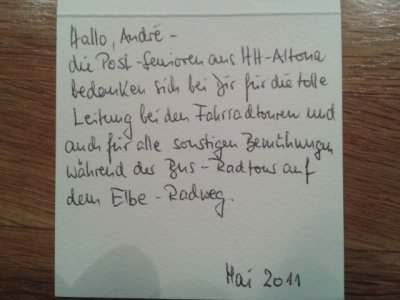 Hallo, André -
die Post-Senioren aus HH-Altona
bedanken sich bei Dir für die tolle
Leitung bei den Fahrradtouren und
auch für alle sonstigen Bemühungen
während der Bus-Radtour auf
dem Elbe-Radweg.
Mai 2011